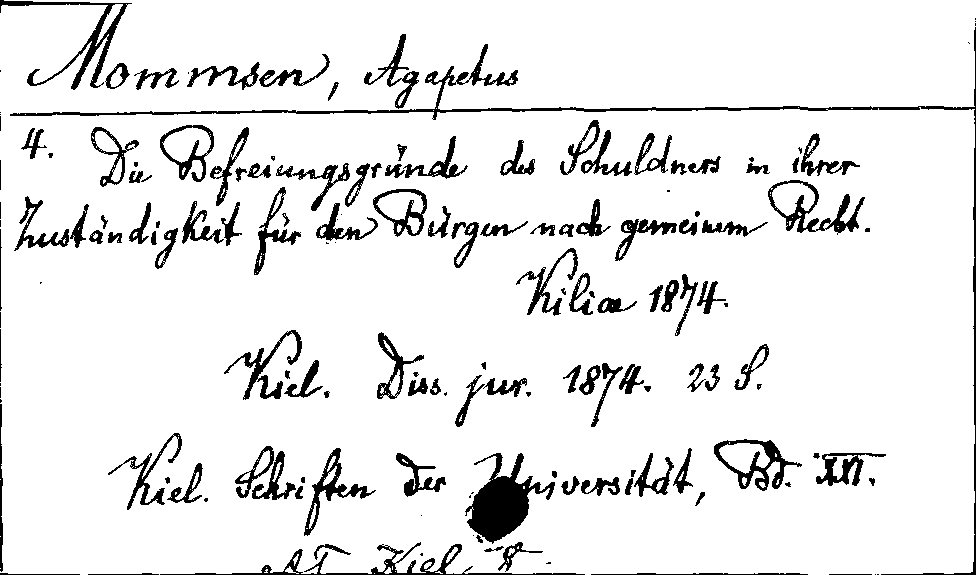 Mommsen, Agapetus
4. Die Befreiungsgründe des Schuldners in ihrer
Zuständigkeit für den Bürgen nach gemeinem Recht.
Kiliae 1874.
Kiel. Diss. jur. 1874. 23 S.
Kiel. Schriften der Universität, Bd. XXI.
Kiel, 8